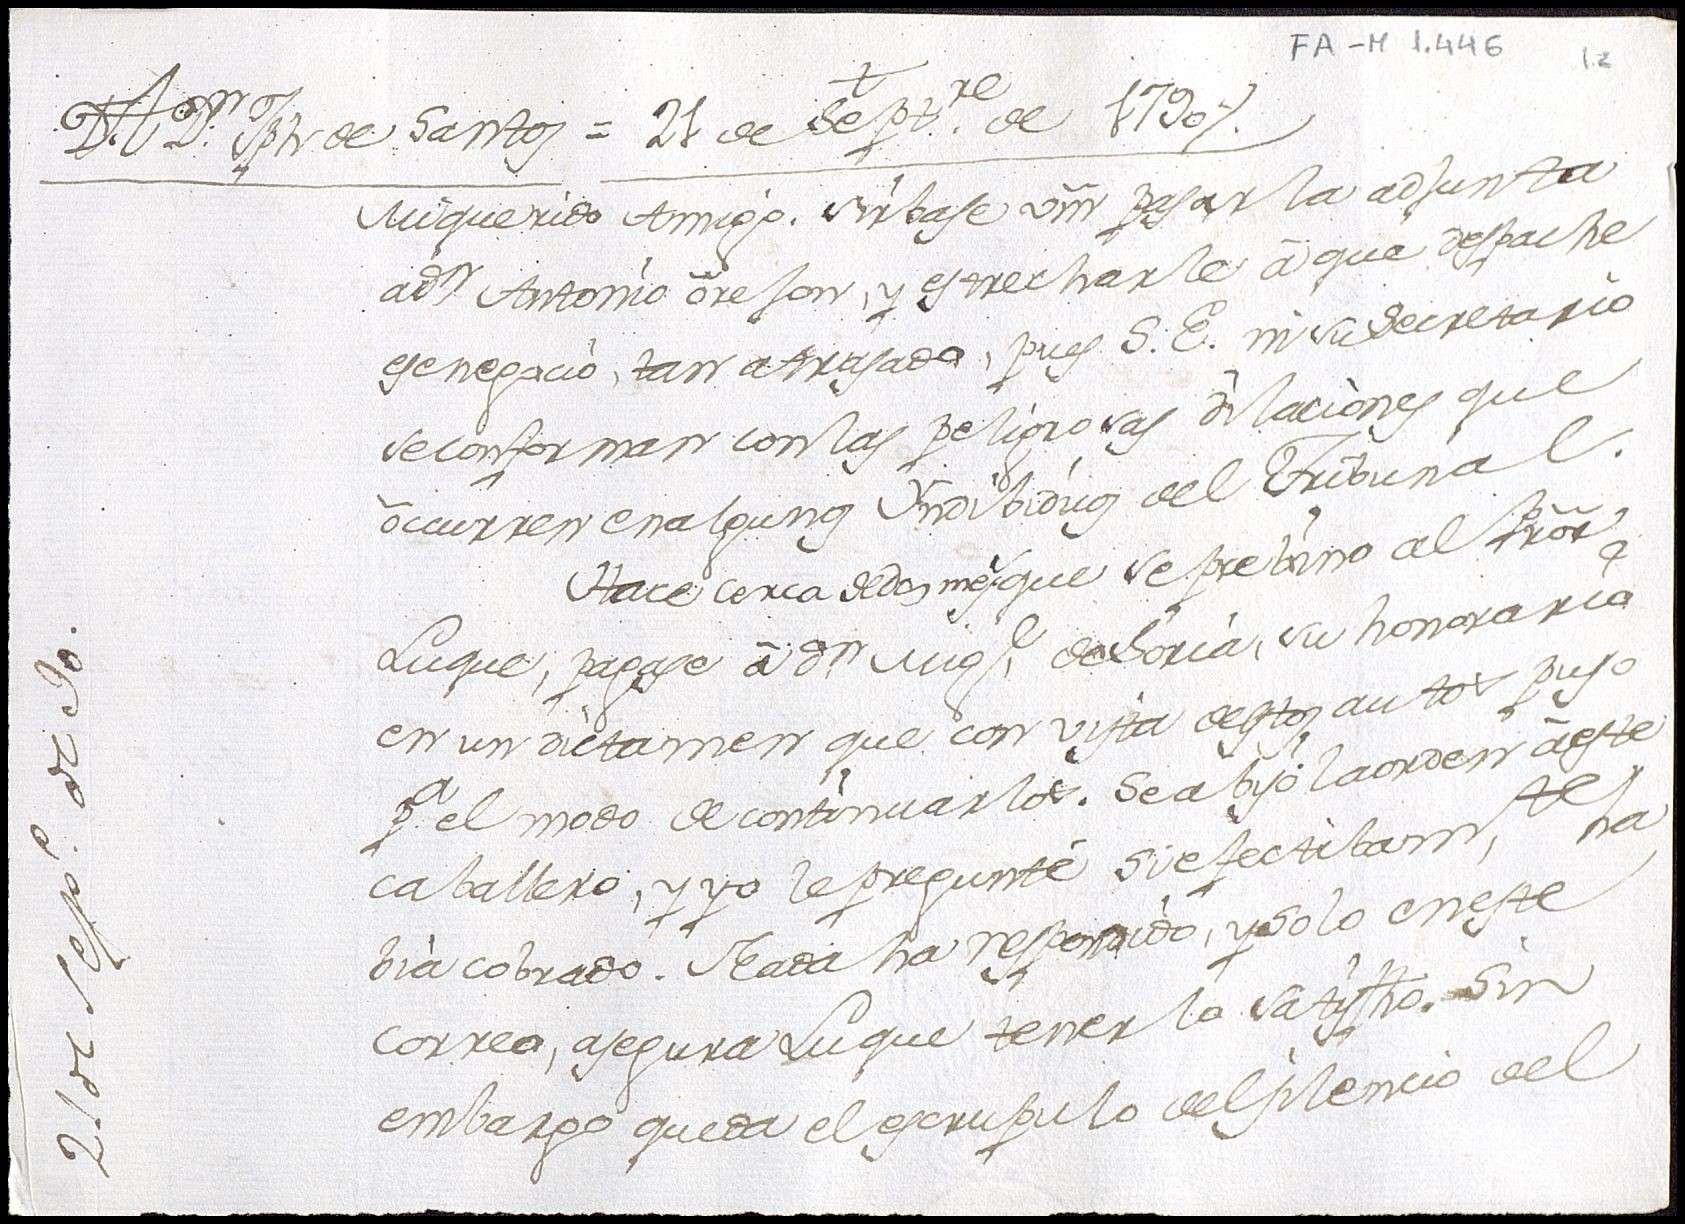 FA-M 1.446
1.2
Dn. Jph de Santos = 21 de Septre. de 1790.
Mi querido Amigo. sirbase vm pasar la adjunta
a dn Antonio, y estrecharle â que despache
ese negocio, tan atrasado, pues S. E. ni su Secretario
se conforman con las peligrosas dilaciones que
ôcurren en algunos Yndibiduos del Tribunal.
Hace cerca de dos meses que se prebino al
Luque, pagase â dn Migl. de Soria, su honorario
en un dictamen que con vista destos autos puso
pa el modo de continuarlos. Se abisó la orden â este
caballero, y yo le pregunté si efectibamte, ha
bia cobrado. Nada ha respondido, y solo en este
correo, asegura Luque tenerlo satisfho. Sin
embargo queda el escrupulo del silencio del
21 de Sepe. de 90.